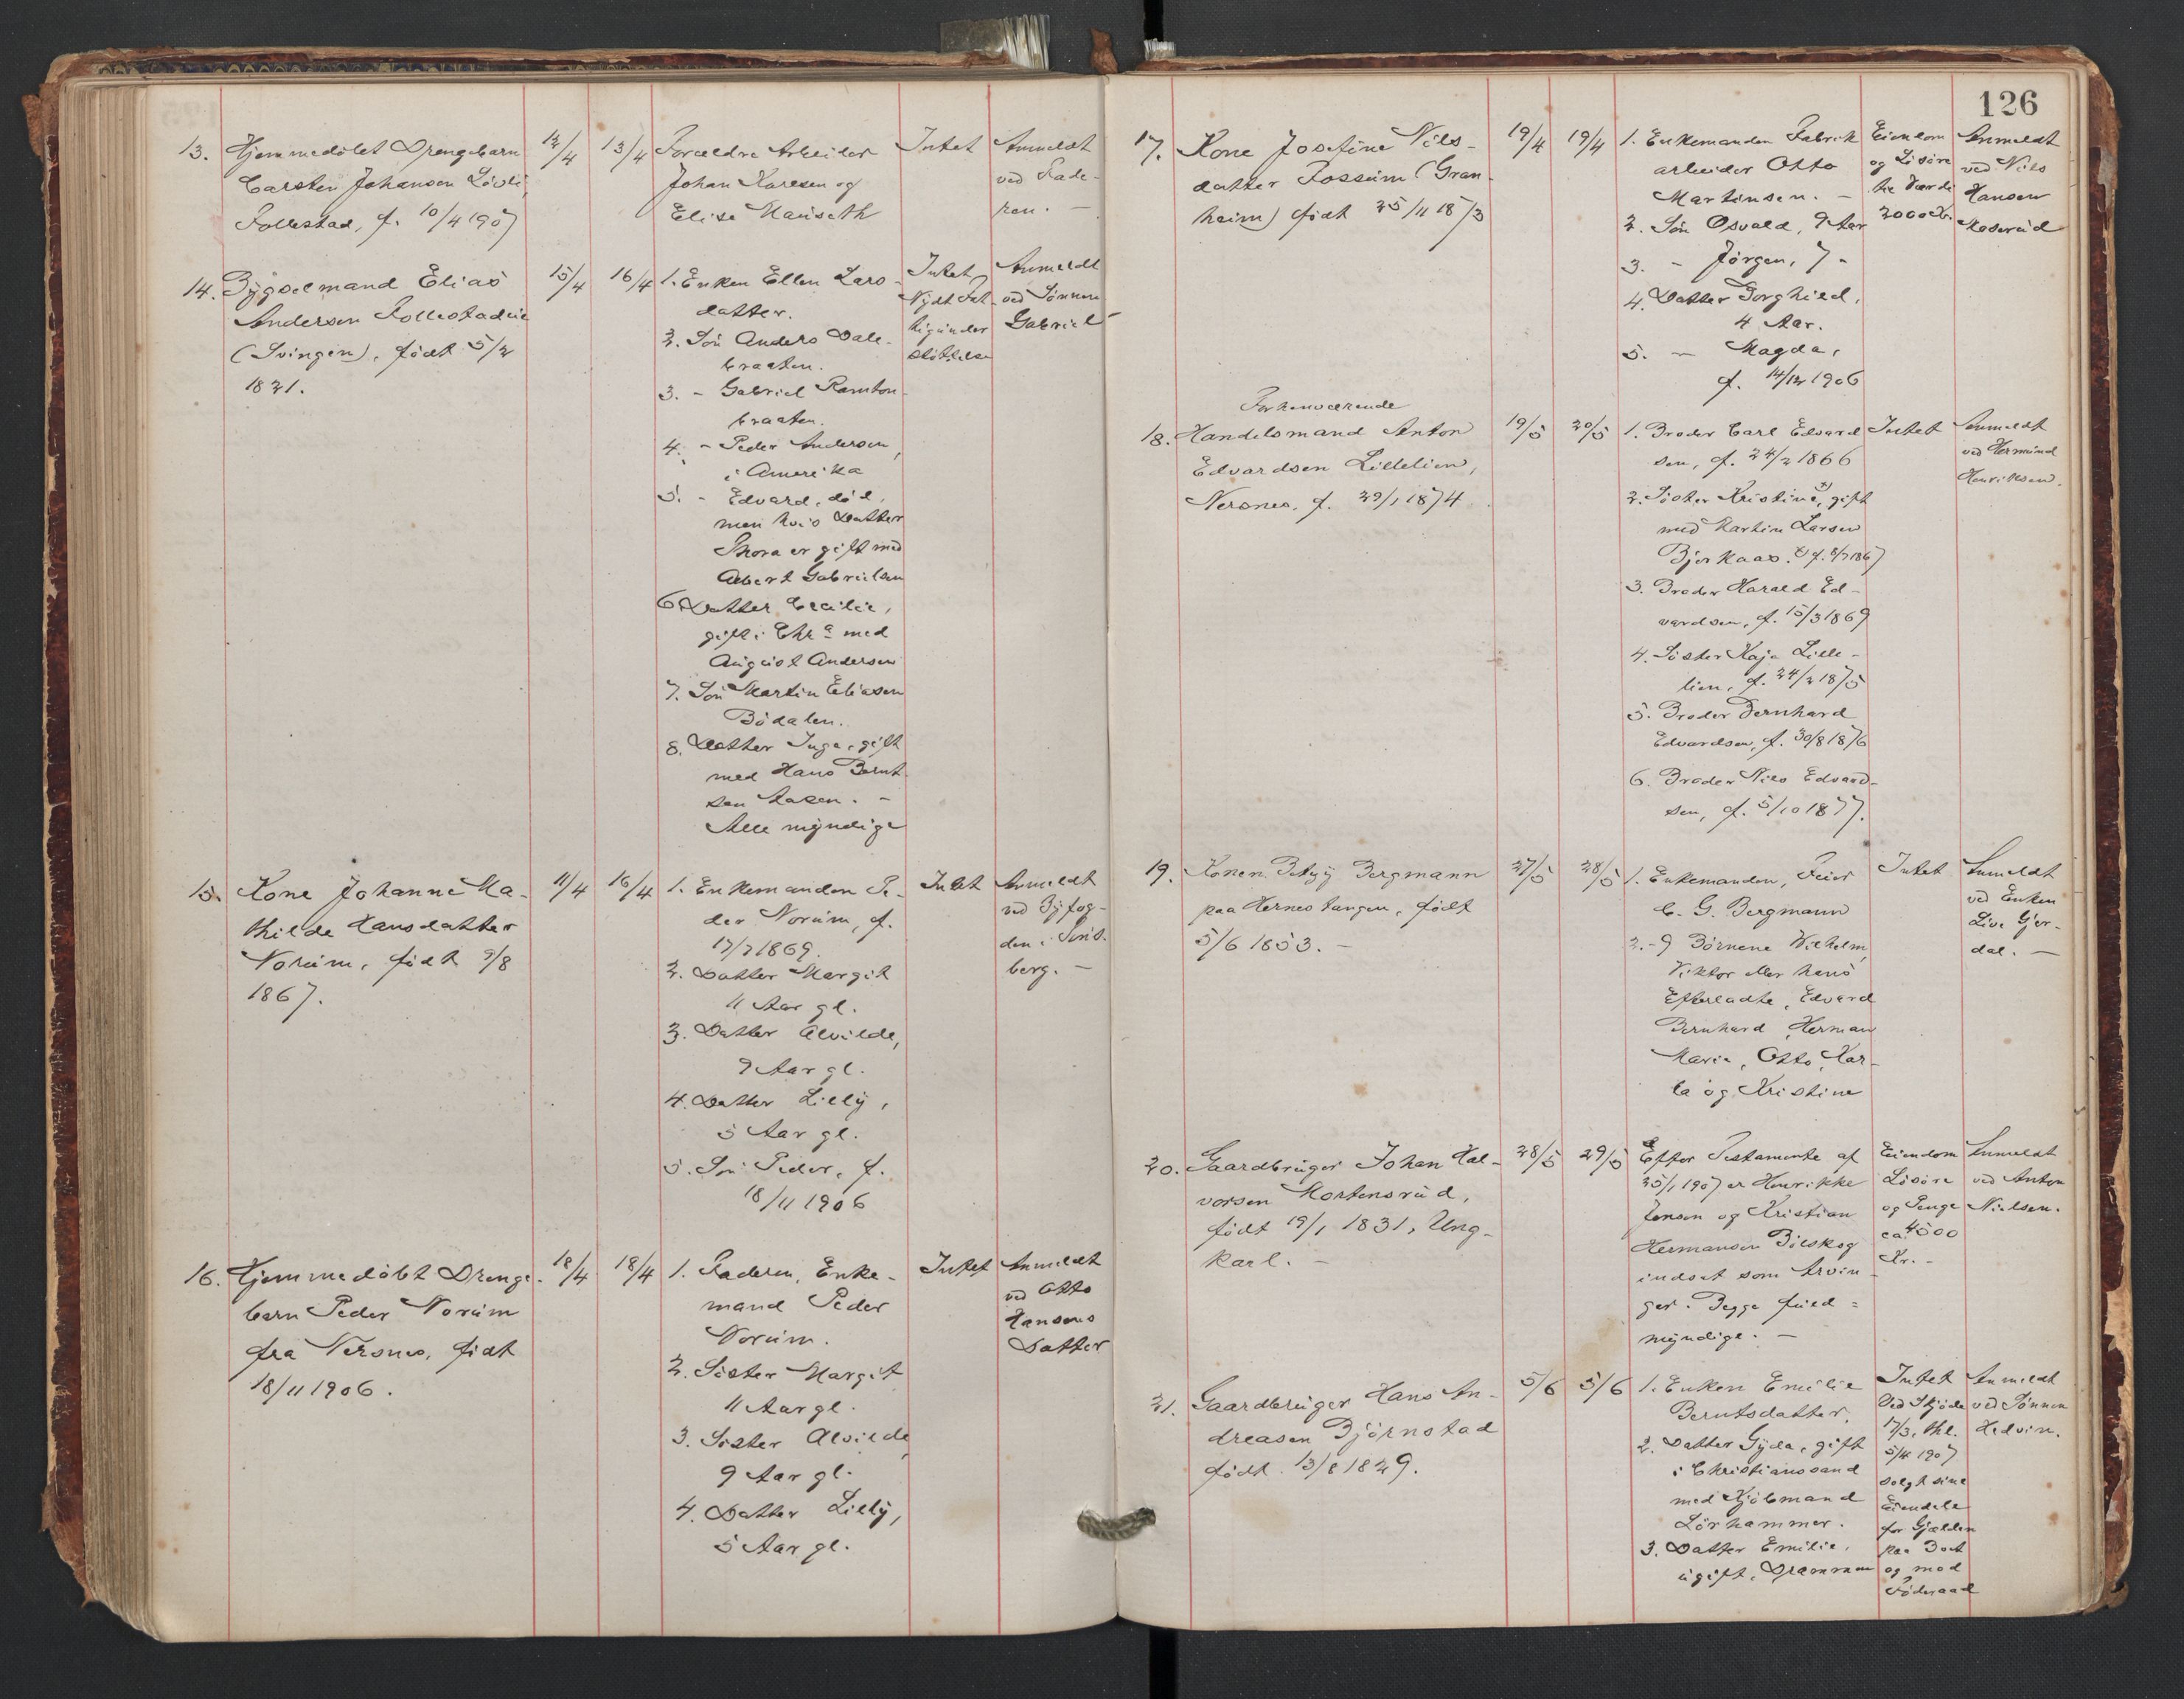 126
13. Hjemmedöbt Drengebarn
Carsten Johansen Lövli,
Follestad, f. 10/4 1907
12/4
13/4
Forældre Arbeider
Johan Karlsen og
Elise Hauseth
Intet
Anmeldt
ved Fade-
ren. —
14. Bygselmand Elias
Andersen Follestadeie
(Svingen), födt 5/2
1821.
15/4
16/4
1. Enken Ellen Lars-
datter.
2. Sön Anders Dale-
braaten.
3. - Gabriel Ramton-
braaten.
4. - Peder Andersen,
i Amerika
5. - Edvard, död,
men hvis Datter
Thora er gift med
Albert Gabrielsen
6. Datter Cecilie,
gift i Chra med
August Andersen
7. Sön Martin Eliasen
Bödalen.
8. Datter Inga, gift
med Hans Bernt-
sen Aasen. -
Alle myndige
Intet
Nydt Fat-
tigunder-
støttelse
Anmeldt
ved Sönnen
Gabriel
15. Kone Johanne Ma-
thilde Hansdatter
Norum, födt 9/8
1867.
11/4
16/4
1. Enkemanden Pe-
der Norum, f.
17/7 1869.
2. Datter Margit
11 Aar gl.
3. Datter Alvilde,
9 Aar gl.
4. Datter Lilly,
5 Aar gl.
5. Sön Peder, f.
18/11 1906
Intet
Anmeldt
ved Byfog-
den i
berg. —
16. Hjemmedöbt Drenge-
barn Peder Norum
fra Nersnes, födt
18/11 1906.
18/4
18/4
1. Faderen, Enke-
mand Peder
Norum.
2. Söster Margit
11 Aar gl.
3. Söster Alvilde
9 Aar gl.
4. Datter Lilly,
5 Aar gl.
Intet
Anmeldt
ved Otto
Hansens
Datter
17. Kone Josefine Nils-
datter Fossum (Gran-
heim) födt 25/11 1873
19/4
19/4
1. Enkemanden Fabrik-
arbeider Otto
Martinsen. —
2. Sön Osvald, 9 Aar
3. - Jörgen, 7 -
4. Datter Borghild,
4 Aar.
5. — Magda,
f. 14/12 1906
Eiendom
og Lösöre
til Værdi
2000 Kr.
Anmeldt
ved Nils
Hansen
Maserud
Forhenværende
18. Handelsmand Anton
Edvardsen Lillelien,
Nersnes, f. 29/1 1874
19/5
20/5
1. Broder Carl Edvard-
sen, f. 24/2 1866
2. Söster Kristine x), gift
med Martin Larsen
Bjerkaas. x) f. 8/7 1867
3. Broder Harald Ed-
vardsen, f. 15/3 1869
4. Söster Kaja Lille-
lien, f. 24/2 1875
5. Broder Bernhard
Edvardsen, f. 30/8 1876
6. Broder Nils Edvard-
sen, f. 5/10 1877.
Intet
Anmeldt
ved Hermund
Henriksen.
19. Konen Betzy Bergmann
paa Hernestangen, födt
5/6 1853. —
27/5
28/5
1. Enkemanden, Feier
C. G. Bergmann
2.-9 Börnene Wilhelm,
Viktor eller hans
Efterladte, Edvard
Bernhard, Herman
Marie, Otto, Kar-
la og Kristine
Intet
Anmeldt
ved Enken
Live Gjer-
dal. —
20. Gaardbruger Johan Hal-
vorsen Mortensrud,
födt 19/1 1831, Ung-
karl. —
28/5
29/5
Efter Testamente af
25/1 1907 er Henrikke
Jensen og Kristian
Hermansen Bölskog
indsat som Arvin-
ger. Begge fuld-
myndige. —
Eiendom
Lösöre
og Penge
ca. 4500
Kr. -
Anmeldt
ved Anton
Nielsen.
21. Gaardbruger Hans An-
dreasen Björnstad
födt 13/8 1829.
5/6
5/6
1. Enken Emilie
Berntsdatter.
2. Datter Gyda, gift
i Christianssand
med Kjöbmand
Lörhammer.
3. Datter Emilie,
ugift, Drammen
Intet
Ved Skjöde
17/3, thl.
5/4 1907
solgt sine
Eiendele
for Gjælden
paa Boet
og mod
Föderaad
Anmeldt
ved Sönnen
Hedvin.